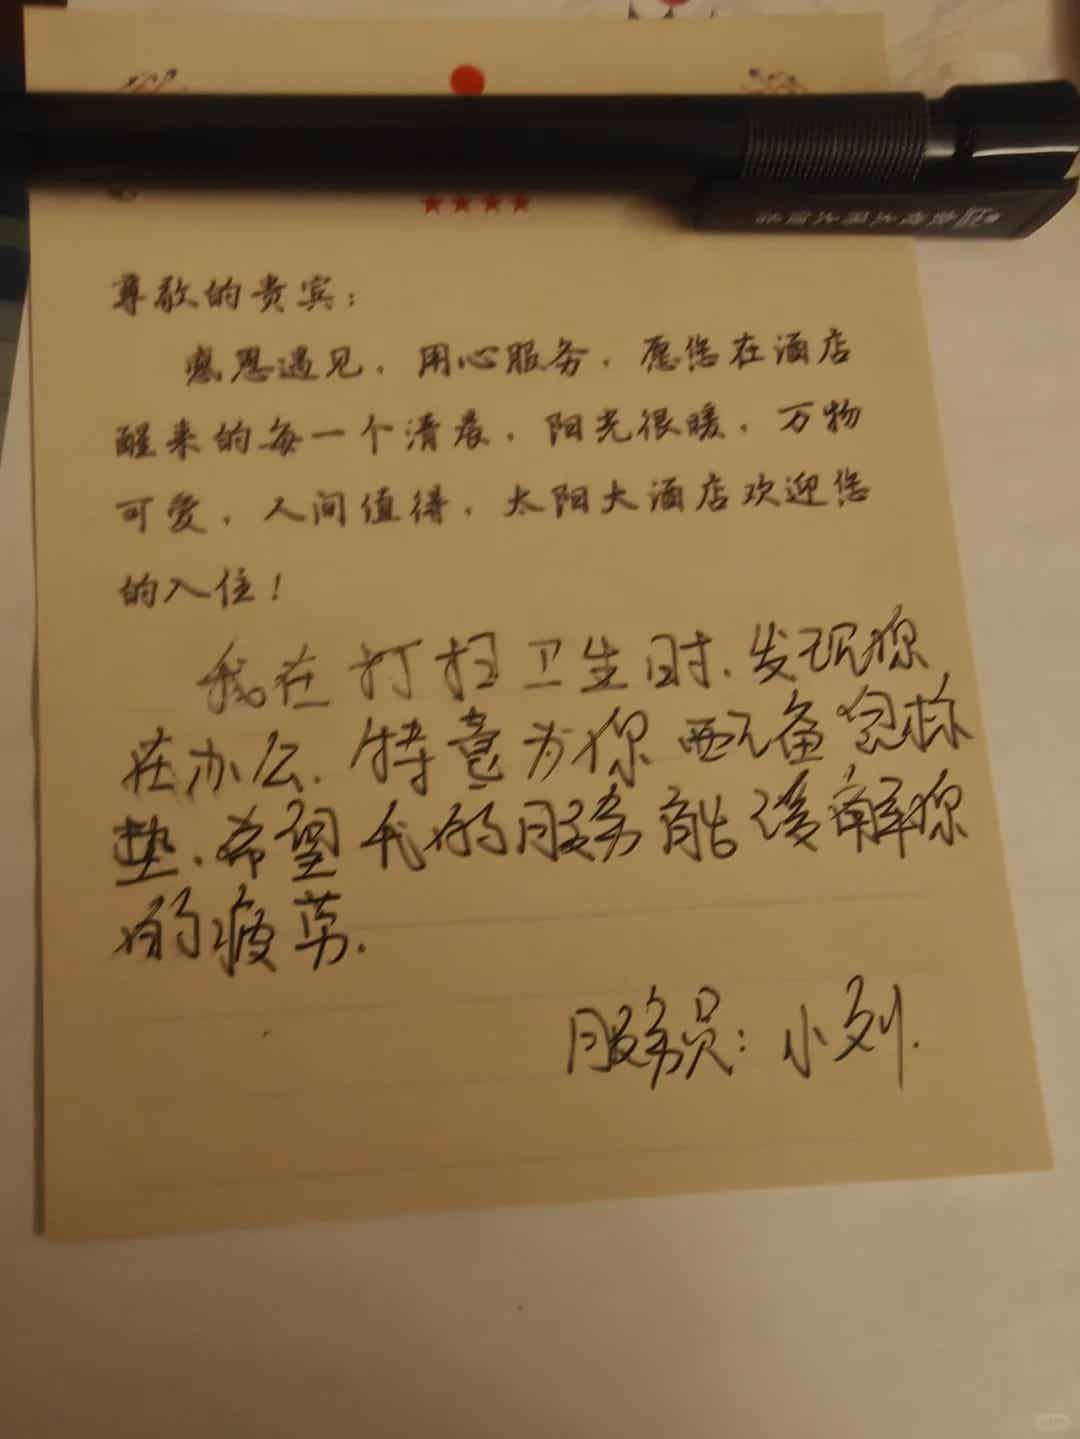 尊敬的贵宾：
感恩遇见，用心服务，愿您在酒店
醒来的每一个清晨，阳光很暖，万物
可爱，人间值得，太阳大酒店欢迎您
的入住！
我在打扫卫生时，发现你
在办公，特意为你配备
垫，希望我的服务能缓解你
的疲劳.
服务员：小刘.